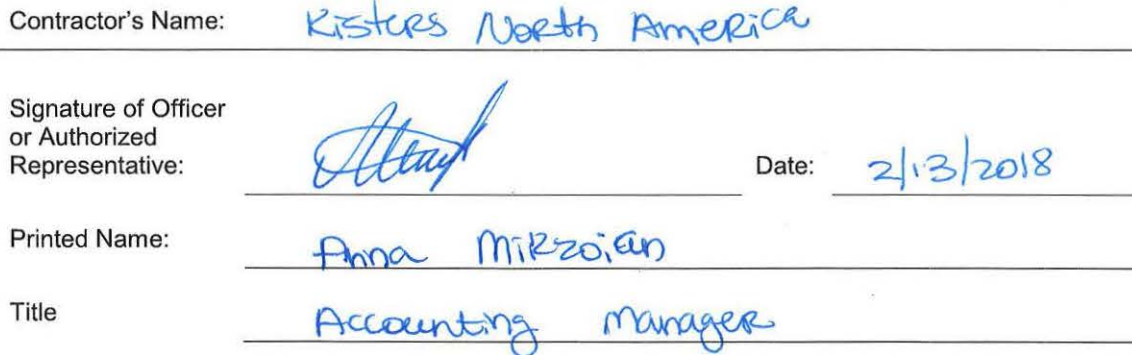 Contractor's Name: Kisters North America
Signature of Officer
or Authorized
Representative: Date: 2/13/2018
Printed Name: Anna Mirzoian
Title Accounting Manager